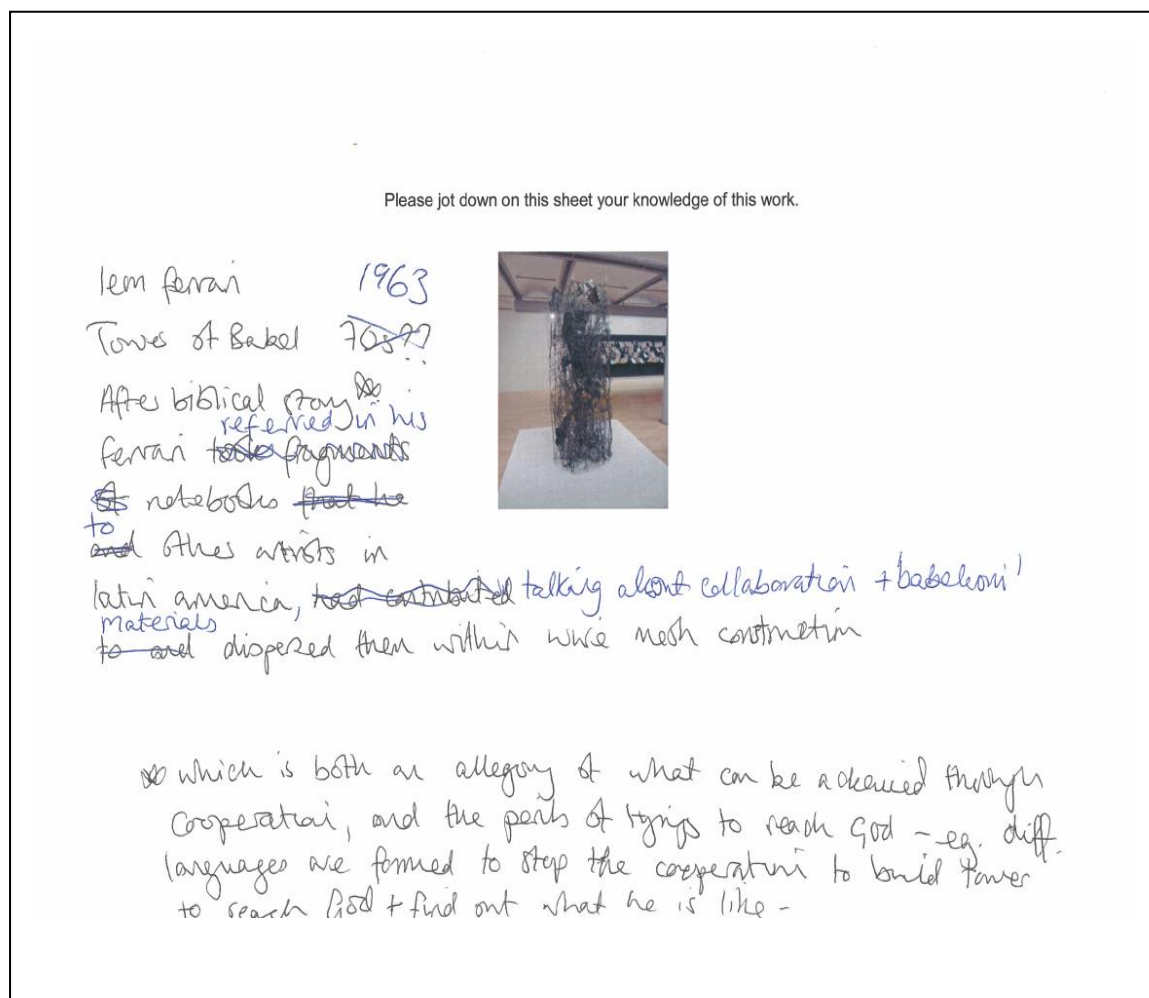 Please jot down on this sheet your knowledge of this work.
leon ferrari 1963
Tower of Babel 70s??
After biblical story
referred in his
ferrari took fragments
of notebooks that he
to
and other artists in
latin america, had contributed talking about collaboration + babelioni'
materials
to and dispersed them within wire mesh construction
which is both an allegory of what can be achieved through
cooperation, and the perils of trying to reach God - eg. diff.
languages are formed to stop the cooperation to build tower
to reach God + find out what he is like -